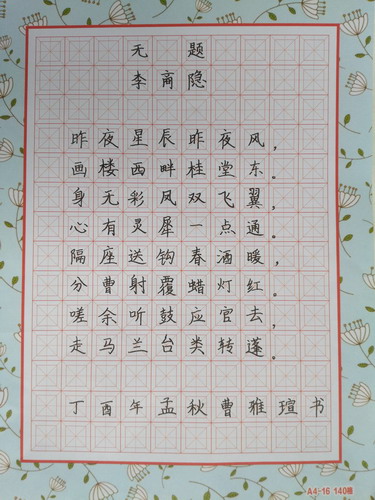 无题
李商隐
昨夜星辰昨夜风，
画楼西畔桂堂东。
身无彩凤双飞翼，
心有灵犀一点通。
隔座送钩春酒暖，
分曹射覆蜡灯红。
嗟余听鼓应官去，
走马兰台类转蓬。
丁酉年孟秋曹雅瑄书
A4-16 140格